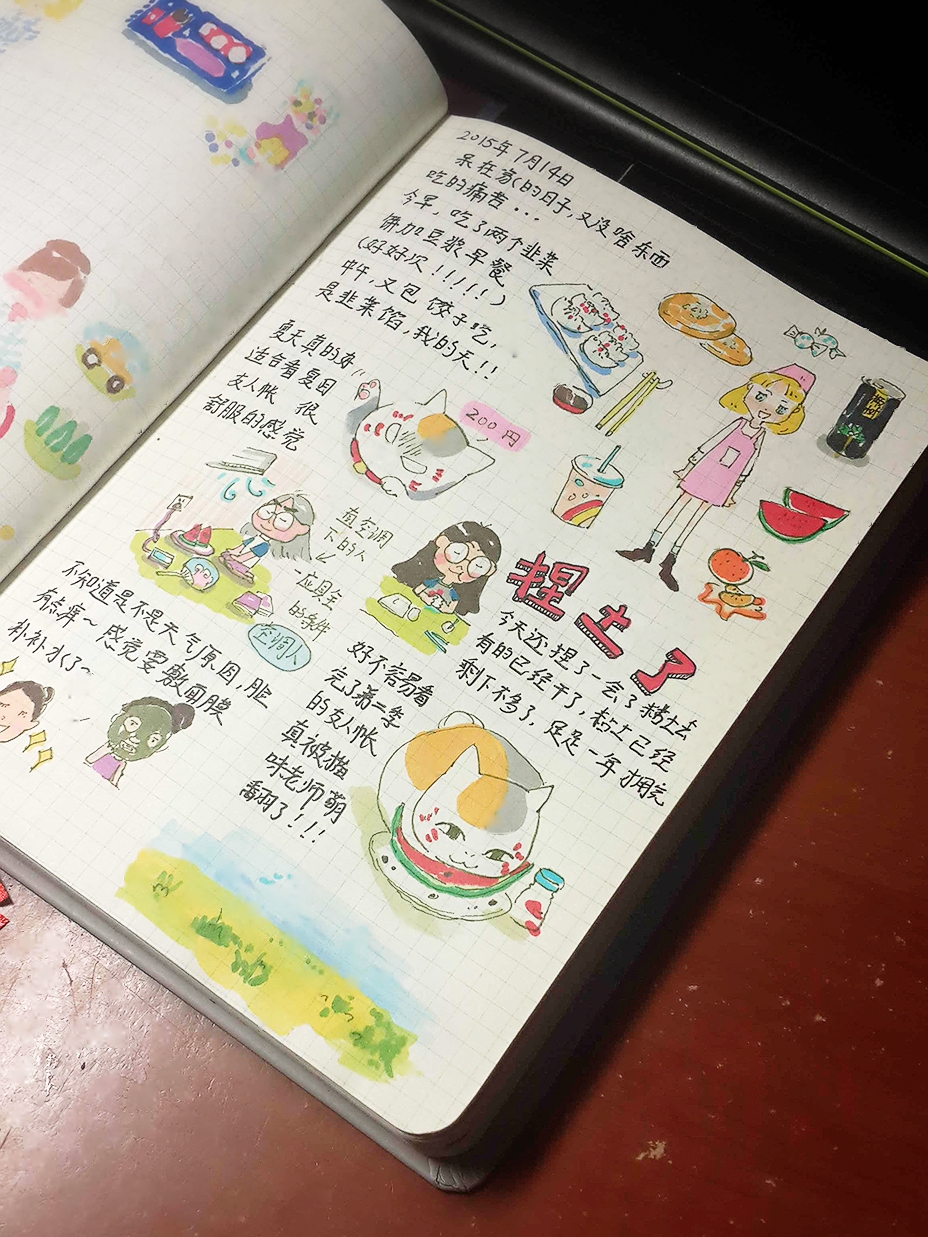 2015年7月14日
呆在家(的日子,又没啥东西
吃的痛苦...
今早,吃了两个韭菜
饼加豆浆早餐
(好好次!!!!!)
中午,又包饺子吃,
是韭菜馅,我的天!!
夏天真的好
适合看夏目
友人帐 很
舒服的感觉
200円
在空调
下的人
应具全
的条件
空调人
捏土了
今天还捏了一会了粘土去
有的已经干了,粘土已经
剩下不多了,足足一年才用完
不知道是不是天气原因,脸
有点痒~感觉要敷面膜
补补水了~
好不容易看
完了第二季
的友人帐
真被猫
咪老师萌
翻了!!!